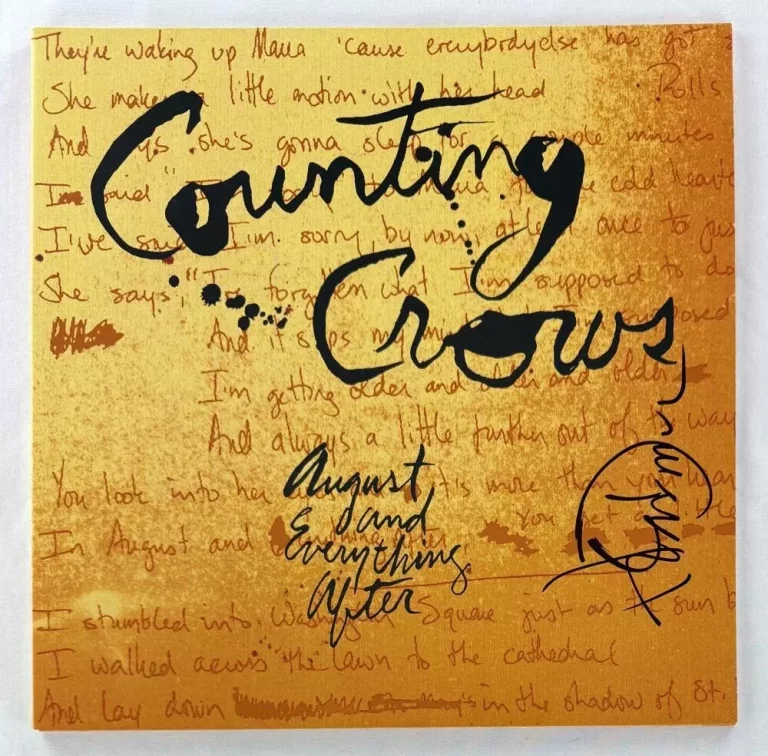 They're waking up Maria 'cause everybody else has got s
She makes a little motion with her head Rolls
And says she's gonna sleep for a couple minutes
Counting
I said "I to Maria for the cold heart
I've said I'm sorry, by now, at least once to jus
She says, "I've forgotten what I'm supposed to do
Crows
And it slips my mind I'm supposed
I'm getting older and older and older
And always a little further out of the way
August
You look into her it's more than you
and
You get a little
In August and everything after
Everything
After
I stumbled into Washington Square just as the sun b
I walked across the lawn to the cathedral
And lay down in the shadow of St.